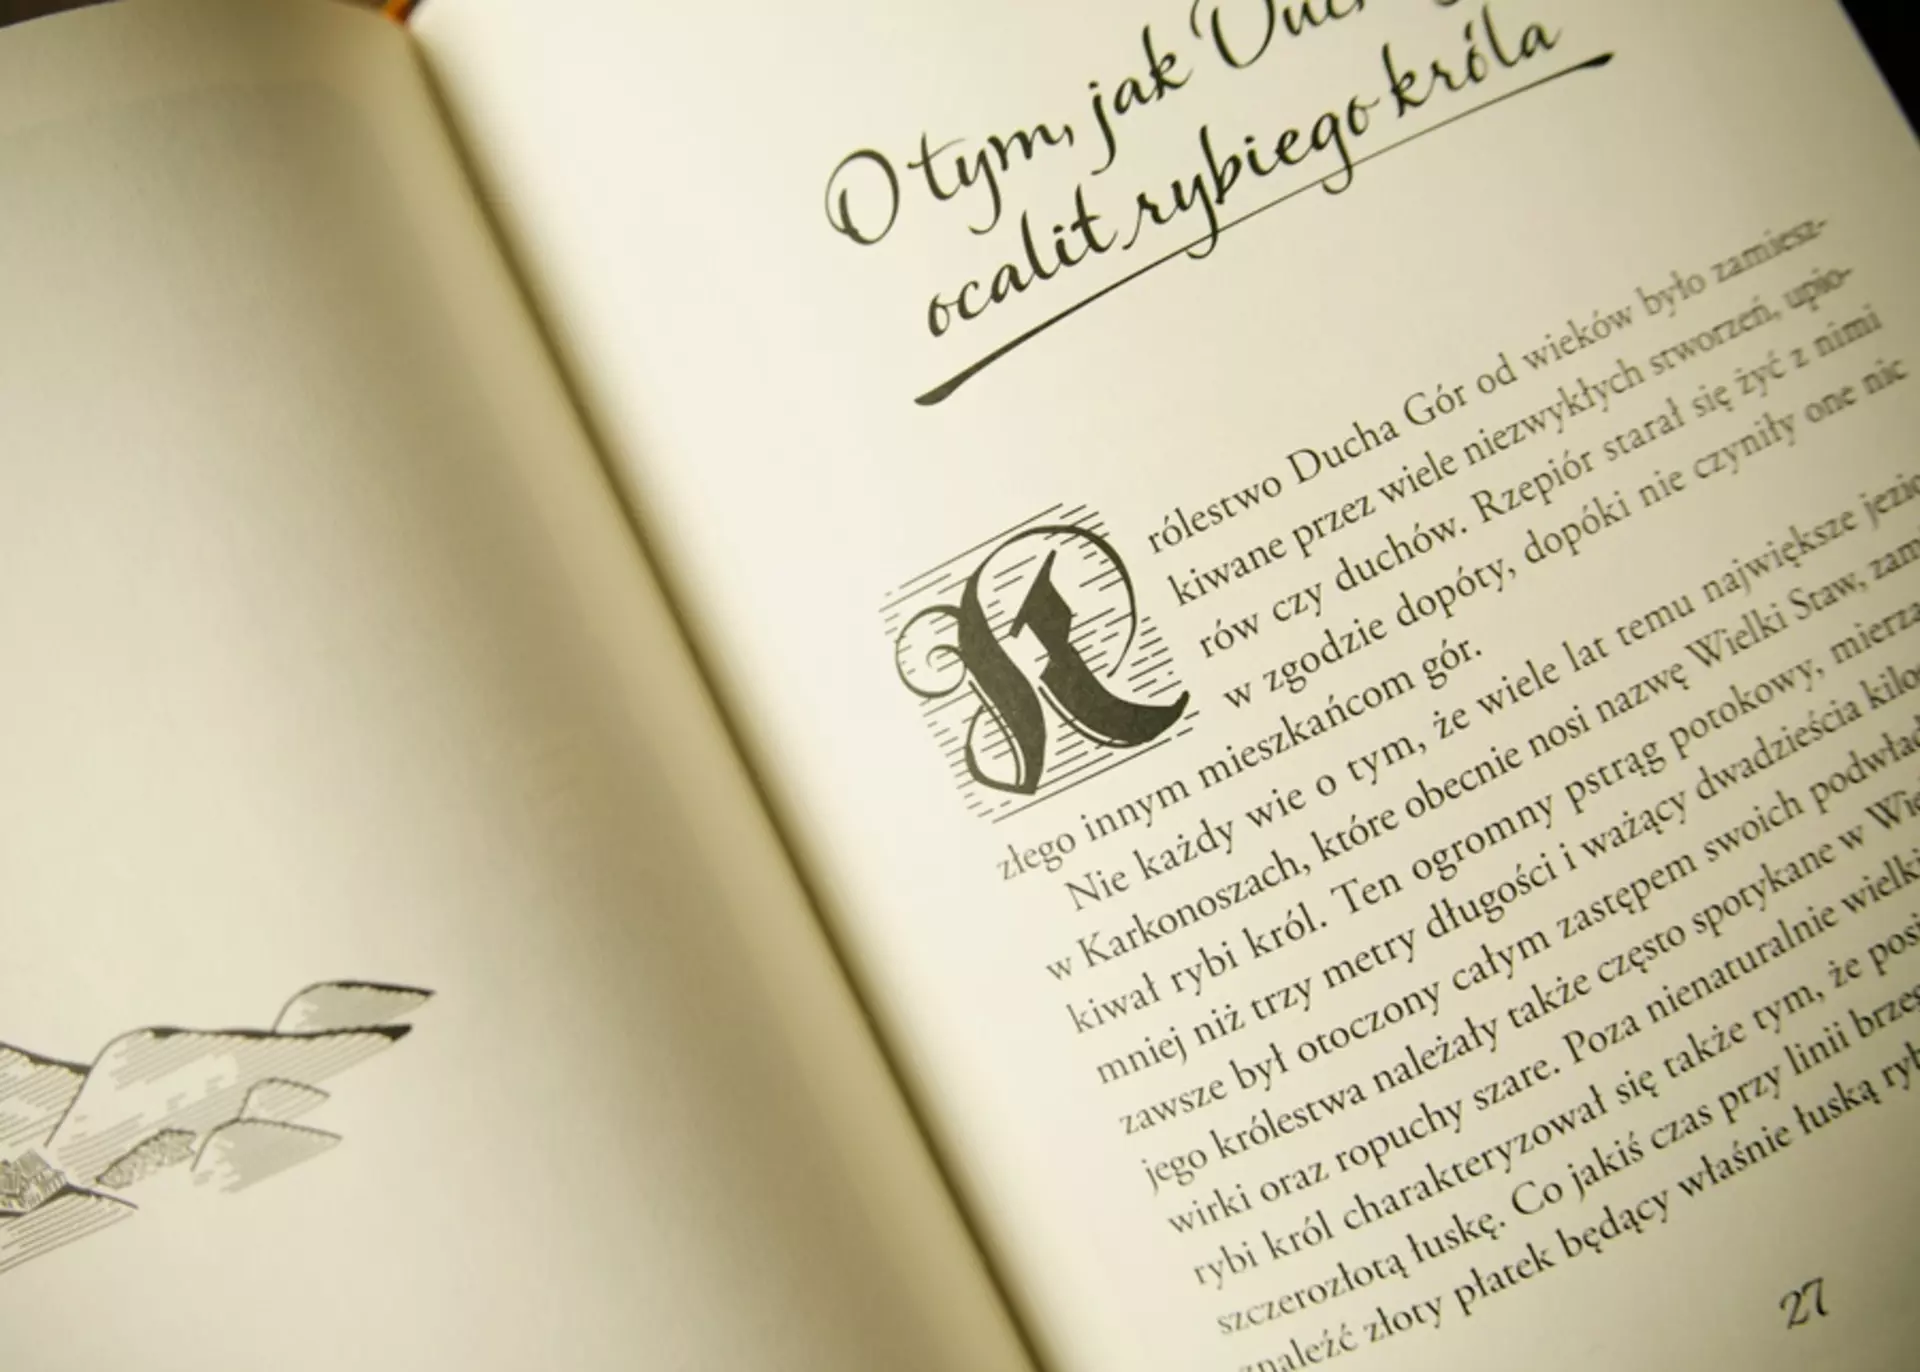 O tym, jak
ocalił rybiego króla
Królestwo Ducha Gór od wieków było zamiesz-
kiwane przez wiele niezwykłych stworzeń, upio-
rów czy duchów. Rzepiór starał się żyć z nimi
w zgodzie dopóty, dopóki nie czyniły one nic
złego innym mieszkańcom gór.
Nie każdy wie o tym, że wiele lat temu największe
w Karkonoszach, które obecnie nosi nazwę Wielki Staw,
kiwał rybi król. Ten ogromny pstrąg potokowy,
mniej niż trzy metry długości i ważący dwadzieścia
zawsze był otoczony całym zastępem swoich
jego królestwa należały także często spotykane w
wirki oraz ropuchy szare. Poza nienaturalnie
rybi król charakteryzował się także tym, że
szczerozłotą łuskę. Co jakiś czas przy linii
znaleźć złoty płatek będący właśnie łuską
27